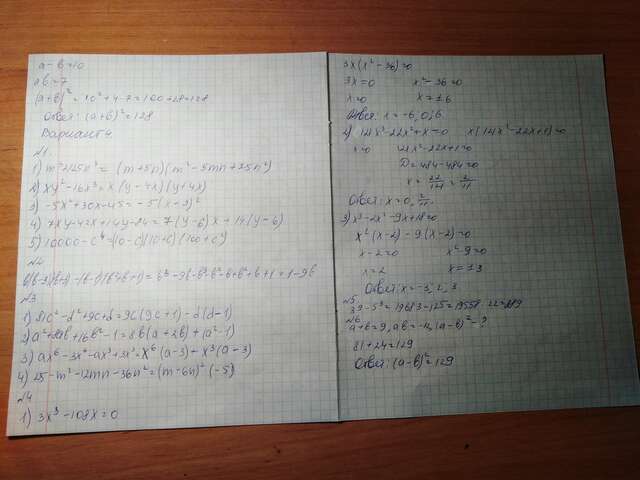 a - b = 10
ab = 7
(a+b)² = 10² + 4·7 = 100 + 28 = 128
Ответ: (a+b)² = 128
Вариант 4
№1.
1) m³+125n³ = (m+5n)(m²-5mn+25n²)
2) xy²-16x³ = x(y-4x)(y+4x)
3) -5x²+30x-45 = -5(x-3)²
4) 7xy-42x+14y-84 = 7(y-6)x+14(y-6)
5) 10000-c⁴ = (10-c)(10+c)(100+c²)
№2
= 1-9b
№3
1) 81c²-d²+9c+d = 9c(9c+1)-d(d-1)
2) a²+8ab+16b²-1 = 8b(a+2b)+(a²-1)
3) ax⁶-3x⁶-ax³+3x³ = x⁶(a-3)-x³(a-3)
4) 25-m²-12mn-36n² = (m-6n)²(-5)
№4
1) 3x³-108x=0
3x(x²-36)=0
3x=0 x²-36=0
x=0 x=±6
Ответ: x=-6, 0; 6
2) 121x³-22x²+x=0 x(121x²-22x+1)=0
x=0 121x²-22x+1=0
D=484-484=0
Ответ: x=0, 2/11
3) x³-2x²-9x+18=0
x²(x-2)-9(x-2)=0
x-2=0 x²-9=0
x=2 x=±3
Ответ: x=-3, 2, 3
№5
3⁹-5³=19683-125=19558
№6
a+b=9, (a-b)²-?
81+24=129
Ответ: (a-b)²=129